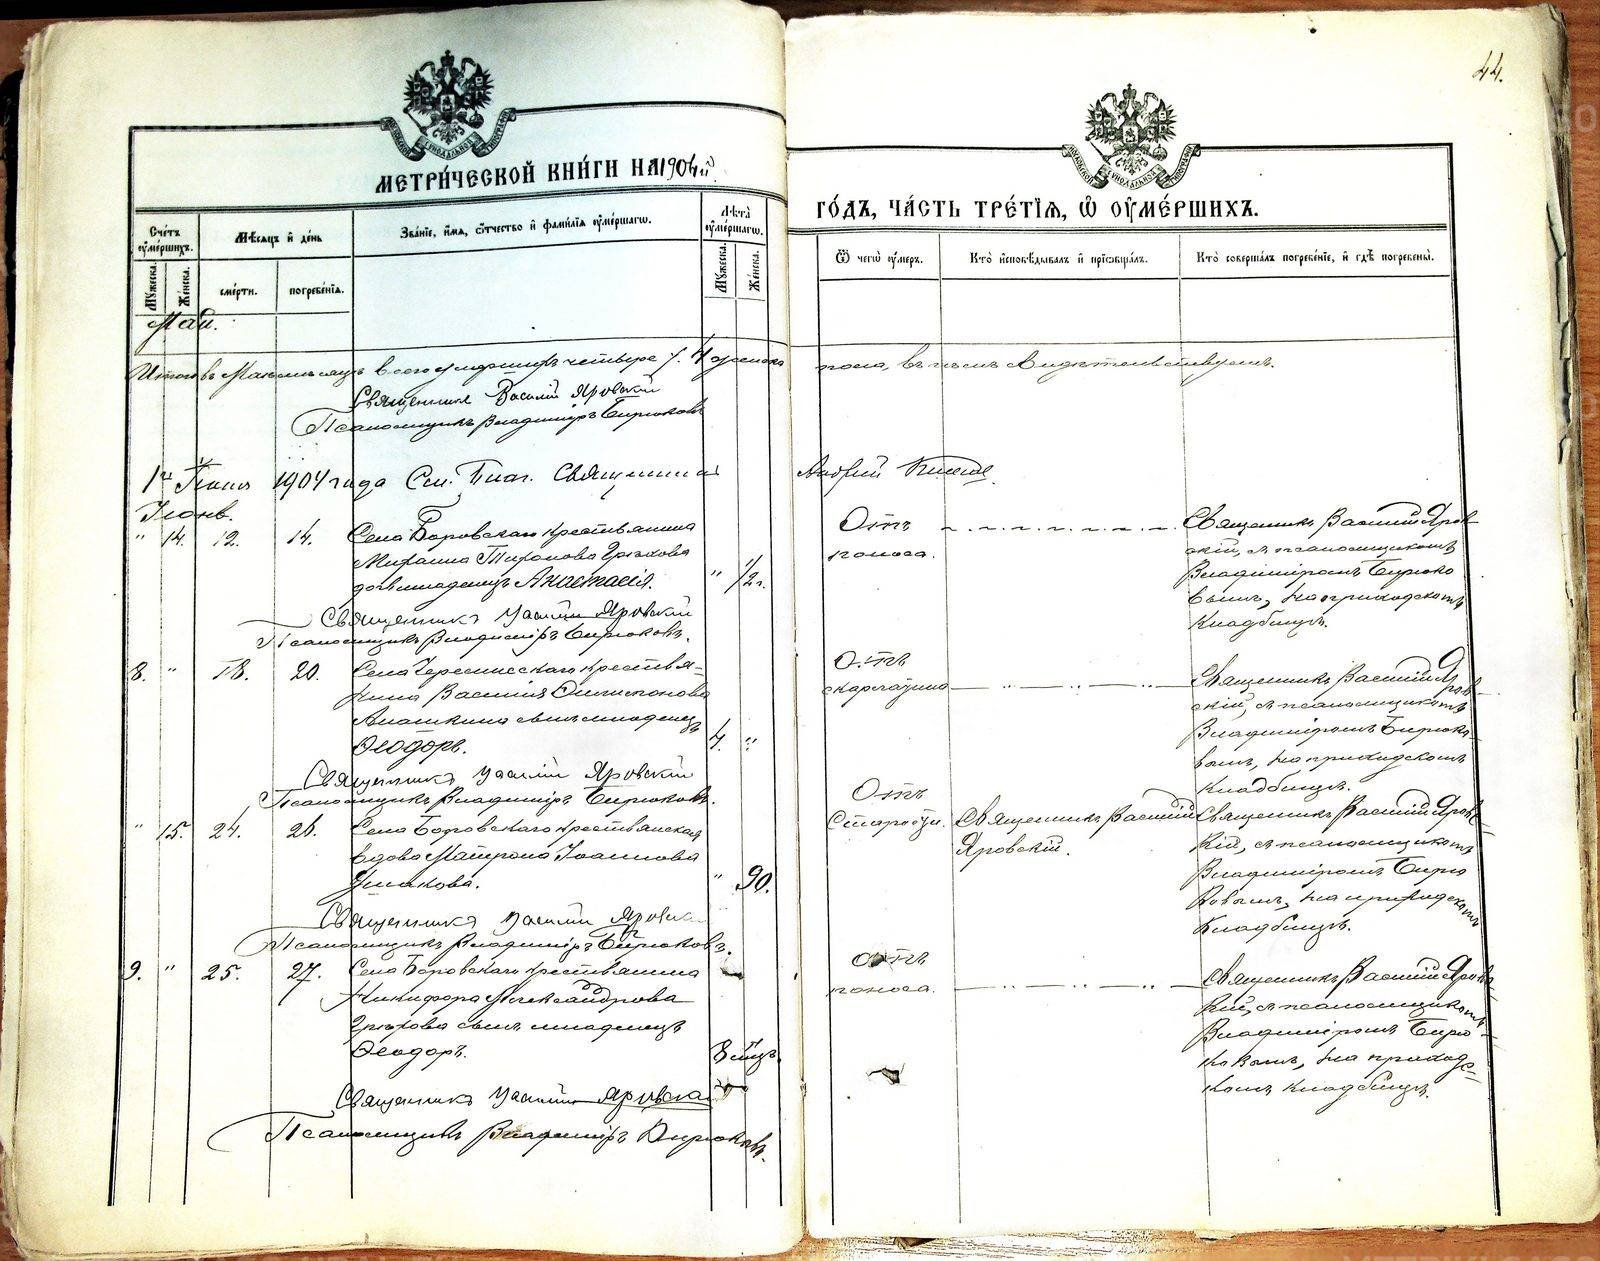 44.
МЕТРИ́ЧЕСКОЙ КНИ́ГИ НА 1904й
ГО́ДЪ, ЧА́СТЬ ТРЕ́ТІѦ, Ѡ҆ ОУ҆МЕ́РШИХЪ.
Сче́тъ оу҆ме́ршихъ.
Мѣ́сѧцъ и҆ де́нь
Зва́нїе, и҆́мѧ, ѻ҆́тчество и҆ фами́лїѧ оу҆ме́ршагѡ.
Лѣ́та оу҆ме́ршагѡ.
Му́жеска.
Же́нска.
сме́рти.
погребе́нїѧ.
Му́жеска.
Же́нска.
Ѿ чегѡ̀ оу҆́меръ.
Кто̀ и҆сповѣ́дывалъ и҆ прїѡбща́лъ.
Кто̀ соверша́лъ погребе́нїе, и҆ гдѣ̀ погребены̀.
Май.
Итого въ Маѣ мѣсяцѣ всего умершихъ четыре 4 женска
пола, въ чемъ свидѣтельствуемъ.
Священникъ Василій Яровскій
Псаломщикъ Владиміръ Бирюковъ
1904 года Благ. Священникъ
Андрей
Іюнь.
" 14. 12. 14. Села Боровскаго крестьянина
дочь младенецъ Анастасія. " 1/2 г.
Отъ
поноса.
Священникъ Василій Яров-
скій, съ псаломщикомъ
Владиміромъ Бирюко
вымъ, на приходскомъ
кладбищѣ.
Священникъ Василій Яровскій
Псаломщикъ Владиміръ Бирюковъ.
8. " 18. 20. Села крестья-
нина Василія Филимонова
сынъ младенецъ
Ѳеодоръ. 4. "
Отъ
скарлатины
Священникъ Василій Яров-
скій, съ псаломщикомъ
Владиміромъ Бирюко-
вымъ, на приходскомъ
кладбищѣ.
Священникъ Василій Яровскій
Псаломщикъ Владиміръ Бирюковъ.
" 15. 24. 26. Села Боровскаго крестьянская
вдова Матрона Іоаннова
Ушакова. " 90.
Отъ
Старости.
Священникъ Василій
Яровскій.
Священникъ Василій Яровс-
кій, съ псаломщикомъ
Владиміромъ Бирю
ковымъ, на приходскомъ
кладбищѣ.
Священникъ Василій Яровскій
Псаломщикъ Владиміръ Бирюковъ.
9. " 25. 27. Села Боровскаго крестьянина
Никифора Александрова
сынъ младенецъ
Ѳеодоръ. 8 мѣц.
Отъ
поноса.
Священникъ Василій Яровс-
кій, съ псаломщикомъ
Владиміромъ Бирю-
ковымъ, на приходс-
комъ кладбищѣ.
Священникъ Василій Яровскій
Псаломщикъ Владиміръ Бирюковъ.